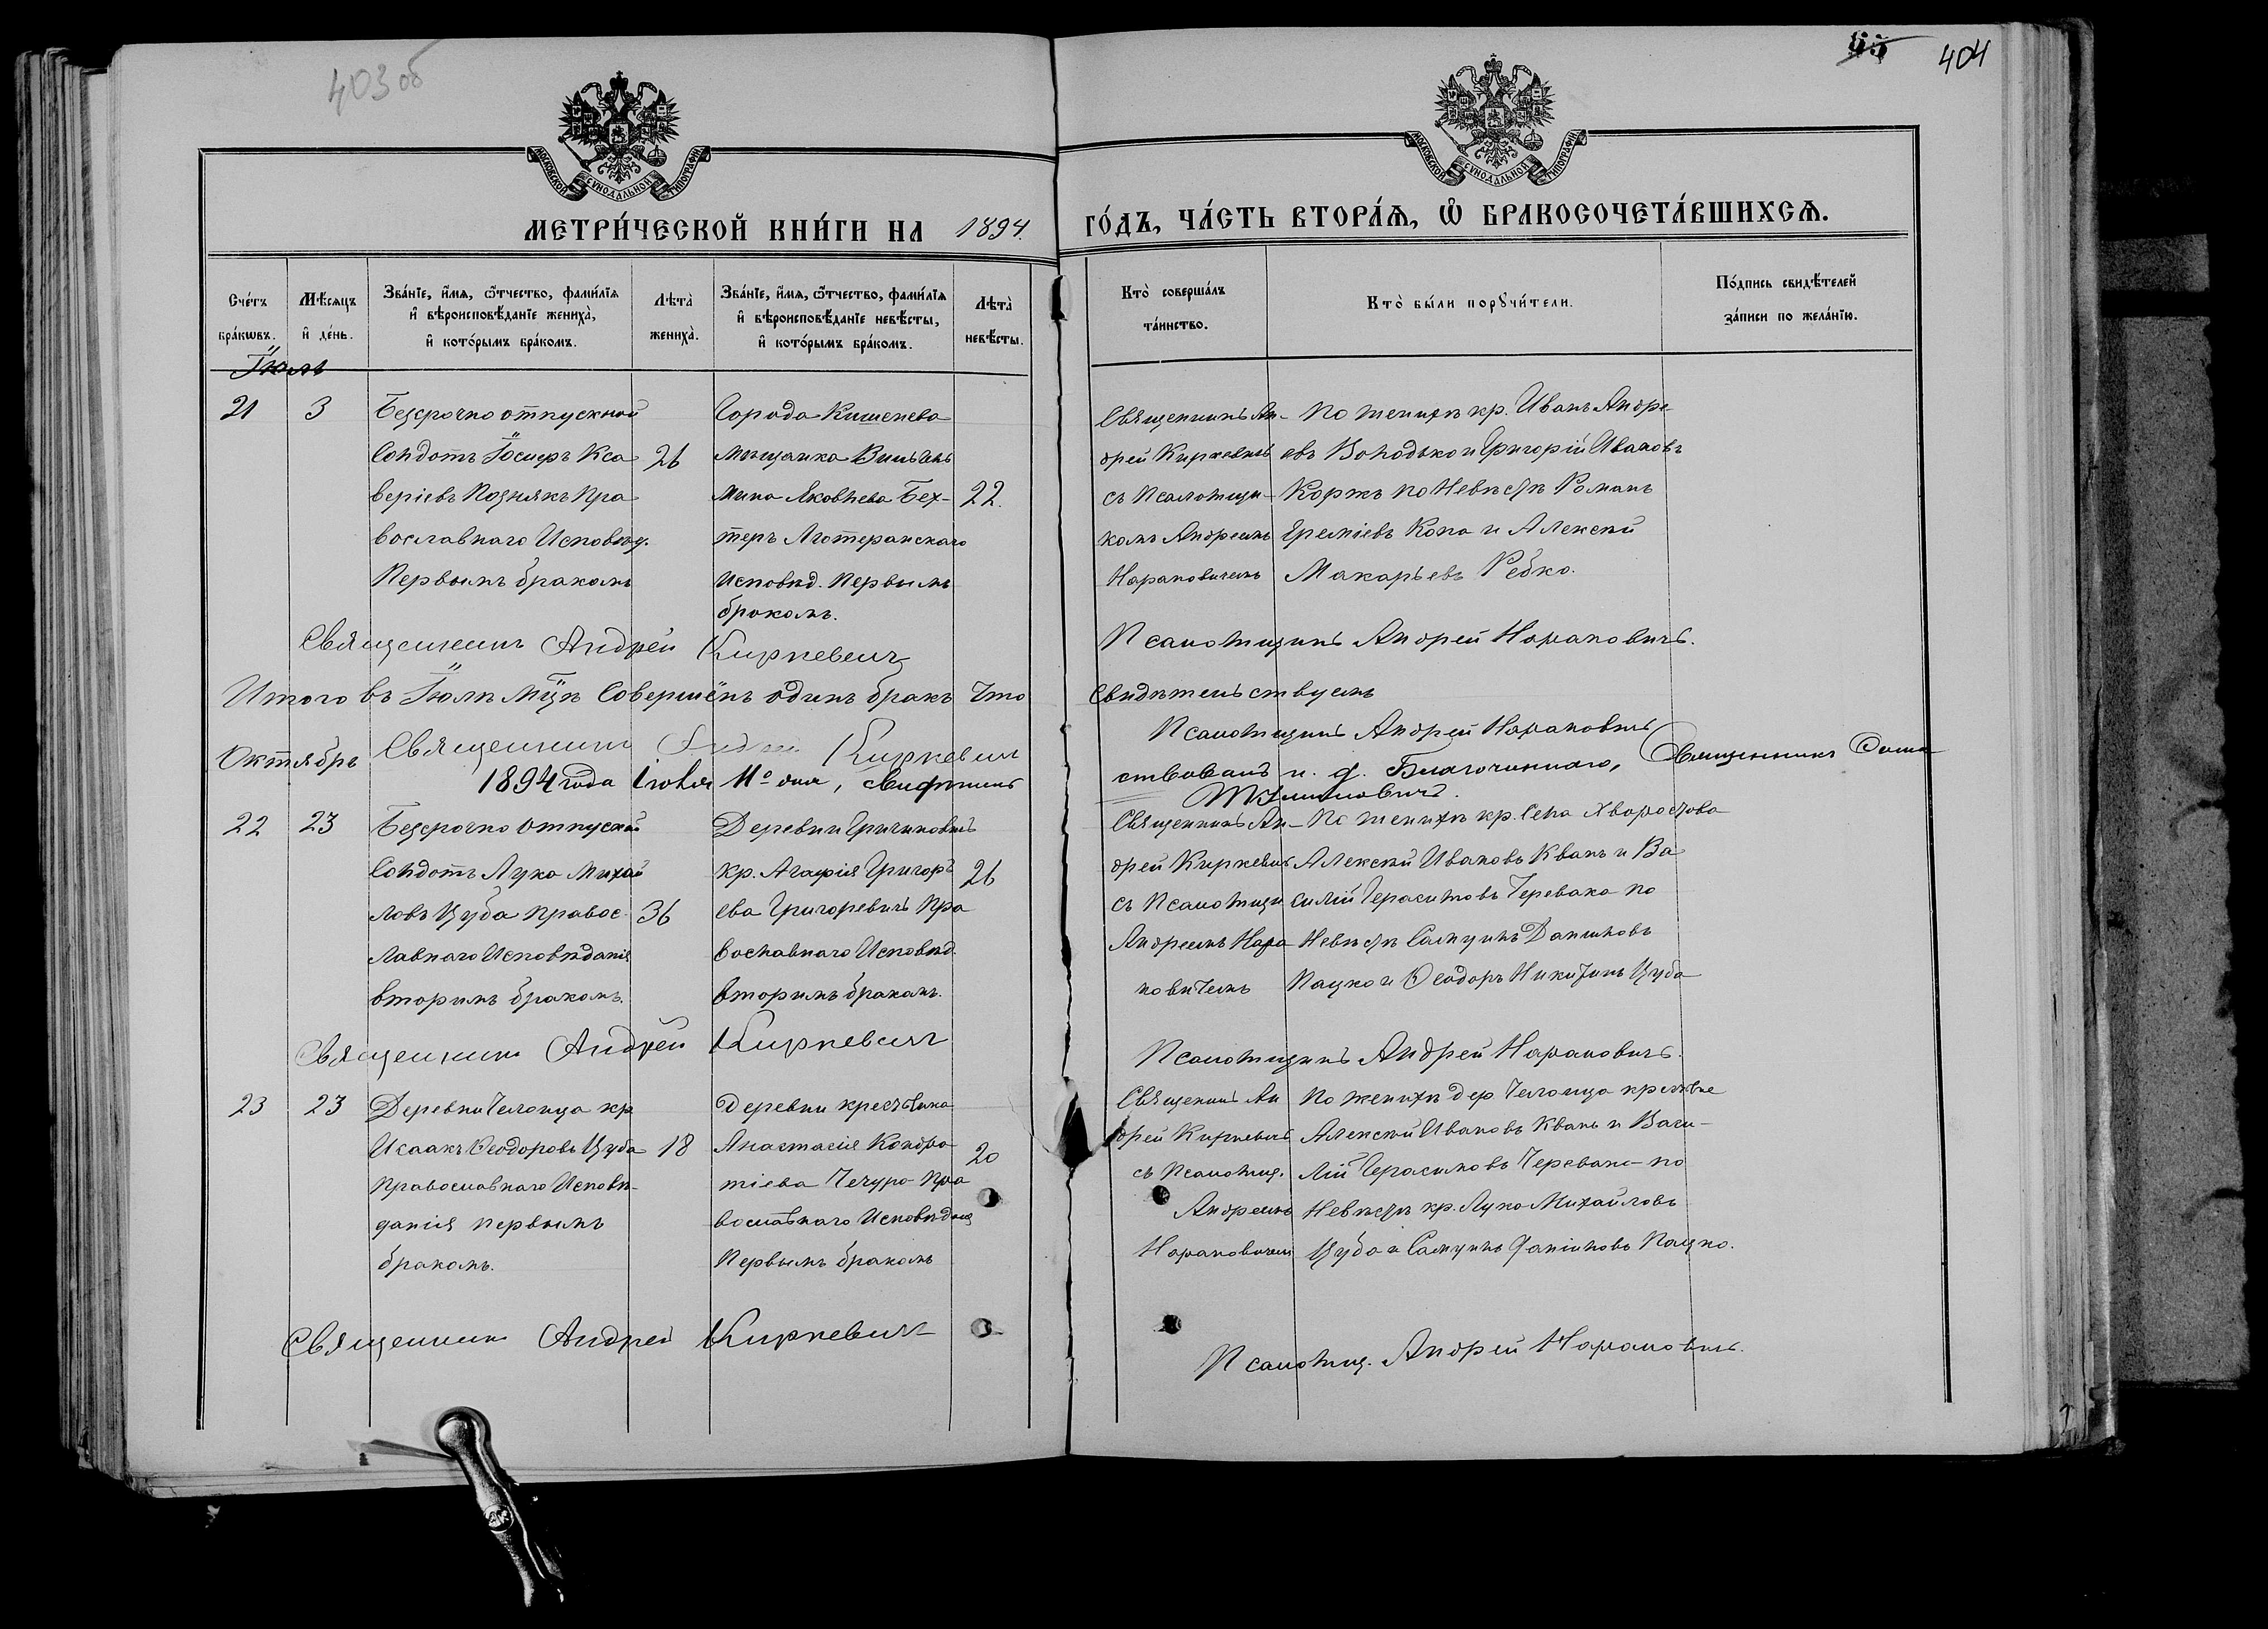 403 об
55 404
МОСКОВСКОЙ СѴНОДАЛЬНОЙ ТИПОГРАФІИ
МОСКОВСКОЙ СѴНОДАЛЬНОЙ ТИПОГРАФІИ
МЕТРИ́ЧЕСКОЙ КНИ́ГИ НА 1894. ГО́ДЪ, ЧА́СТЬ ВТОРА́Ѧ, Ѽ БРАКОСОЧЕТА́ВШИХСѦ.
Сче́тъ бра́кѡвъ.
Мѣ́сяцъ и҆ де́нь.
Зва́нїе, и҆́мѧ, ѻ҆́тчество, фамѝлїѧ и҆ вѣроисповѣ́данїе жениха̀, и҆ кото́рымъ бра́комъ.
Лѣта̀ жениха̀.
Зва́нїе, и҆́мѧ, ѻ҆́тчество, фамѝлїѧ и҆ вѣроисповѣ́данїе невѣ́сты, и҆ кото́рымъ бра́комъ.
Лѣта̀ невѣ́сты.
Кто̀ соверша́лъ та́инство.
Кто̀ бы́ли порꙋчи́тели.
По́дпись свидѣ́телей за́писи по жела́нїю.
Іюль
21 3
Безсрочно отпускной
Солдатъ Іосифъ Кса
веріевъ Познякъ Пра
вославнаго Исповѣд.
Первымъ бракомъ
26
Города Кишенева
Мѣщанка Вильгель
мина Яковлева Бех-
теръ Лютеранскаго
Исповѣд. Первымъ
бракомъ.
22.
Священникъ Ан-
дрей Киркевичъ
съ Псаломщи-
комъ Андреемъ
Нарановичемъ
По женихѣ кр. Иванъ Андре-
евъ Володько и Григорій Ивановъ
Коржъ по Невѣстѣ Романъ
Ереміевъ Копа и Алексѣй
Макарьевъ Ребко.
Священникъ Андрей Киркевичъ
Псаломщикъ Андрей Нарановичъ.
Итого въ Іюлѣ Мцѣ Совершёнъ одинъ бракъ Что
Свидѣтельствуемъ
Священникъ Андрей Киркевичъ
Псаломщикъ Андрей Нарановичъ
1894 года Іюля 11º дня, свидѣтель
ствовалъ и. д. Благочиннаго, Священникъ
Октябрь
22 23
Безсрочно отпускной
Солдатъ Лука Михай
ловъ Цуба Правос
лавнаго Исповѣданія
вторымъ бракомъ.
36
Деревни Гричиновичъ
кр. Агафія Григорь
ева Григоревичъ Пра
вославнаго Исповѣд.
вторымъ бракомъ.
26
Священникъ Ан-
дрей Киркевичъ
съ Псаломщи
Андреемъ Нара
новичемъ
По женихѣ кр. Села Хворостова
Алексѣй Ивановъ Квань и Ва
силій Герасимовъ Черевака по
Невѣстѣ Самуилъ Даниловъ
Пацко и Ѳеодоръ Никитинъ Цуба
Священникъ Андрей Киркевичъ
Псаломщикъ Андрей Нарановичъ.
23 23
Деревни Челонца кр
Исаакъ Ѳеодоровъ Цуба
Православнаго Исповѣ-
данія первымъ
бракомъ.
18
Деревни крестьянка
Анастасія Кондра
тіева Чечуро Пра
вославнаго Исповѣданія
Первымъ бракомъ
20
Священникъ Ан
дрей Киркевичъ
съ Псаломщ.
Андреемъ
Нарановичемъ
По женихѣ дер Челонца крестьяне
Алексѣй Ивановъ Квань и Васи-
лій Герасимовъ Черевако по
Невѣстѣ кр. Лука Михайловъ
Цуба и Самуилъ Даніиловъ Пацко.
Священникъ Андрей Киркевичъ
Псаломщ. Андрей Нарановичъ.